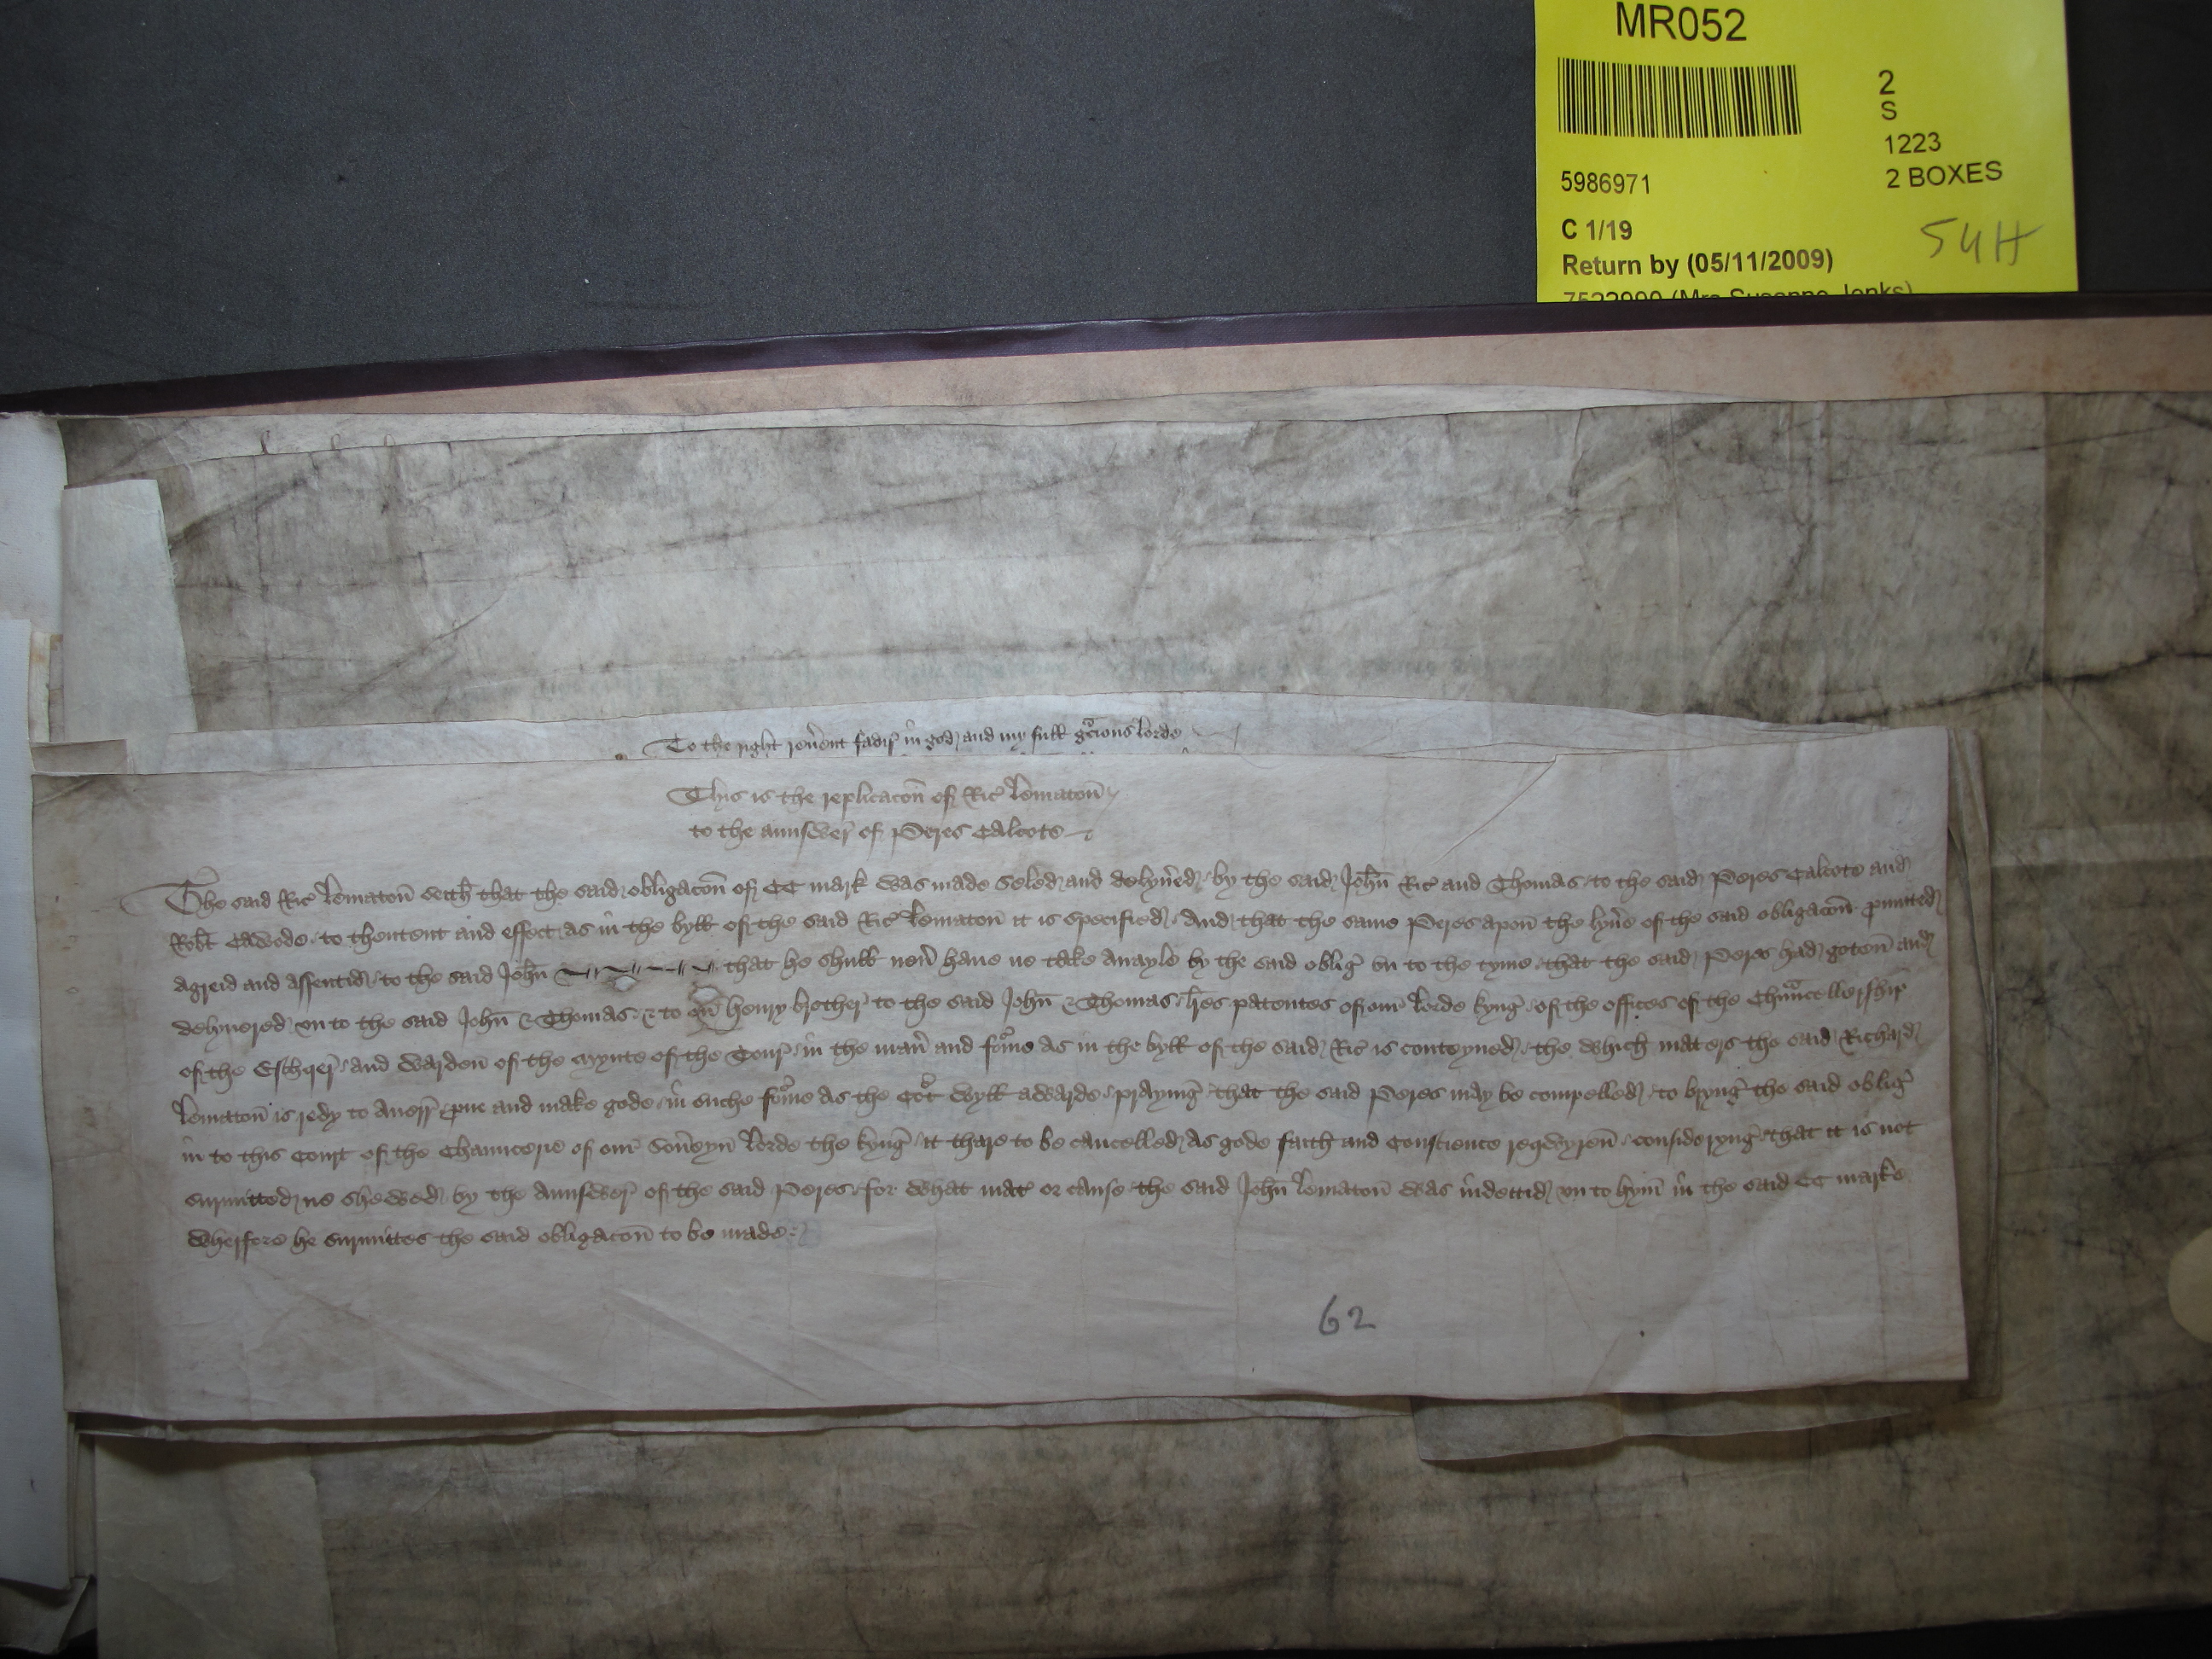 MR052
2
S
1223
2 BOXES
5986971
C 1/19
54H
Return by (05/11/2009)
To the right rev̄ent fadir in god and my full gr̄cious lorde
This is the replicacōn of Ric̄ lematōn
to the aunswer̄ of Peres Calcote
The said Ric̄ lematōn seith that the said obligacōn of CC mark was made seled and delyv̄ed by the said Joh̄n Ric̄ and Thomas to the said Peres Calcote and
Rob̄t Cawode to thentent and effect as in the byll of the said Ric̄ lematōn it is specified And that the same Peres apōn the lyv̄e of the said obligacōn p̄mitted
agreid and assentid to the said Joh̄n that he shull nev̄ haue ne take avayle by the said obliḡ vn to the tyme that the said Peres had gotēn and
delyuered vn to the said Joh̄n & Thomas & to on̄ henry brother to the said Joh̄n & Thomas l̄res patentes of our̄ lorde kynḡ of the offices of the Chāuncellership
of the Escheqer̄ and Wardēn of the Mynte of the Tour̄ in the man̄ and fo̔me as in the byll of the said Ric̄ is conteyned the which maters the said Richard
lematōn is redy to Auerr̄ p̄ue and make gode in suche fo̔me as the Co̔t wyll awarde praynḡ that the said Peres may be compelled to brynḡ the said obliḡ
in to this Court of the Chauncerie of our̄ Sov̄eyn̄ lorde the kynḡ it thare to be cancelled As gode faith and Conscience reqwyrēn considerynḡ that it is not
surmitted ne shewed by the Aunswer̄ of the said Peres for what mat̄ or cause the said Joh̄n lematōn was indettid vn to hym̄ in the said CC marke
Wherfore he surmittes the said obligacōn to be made
62